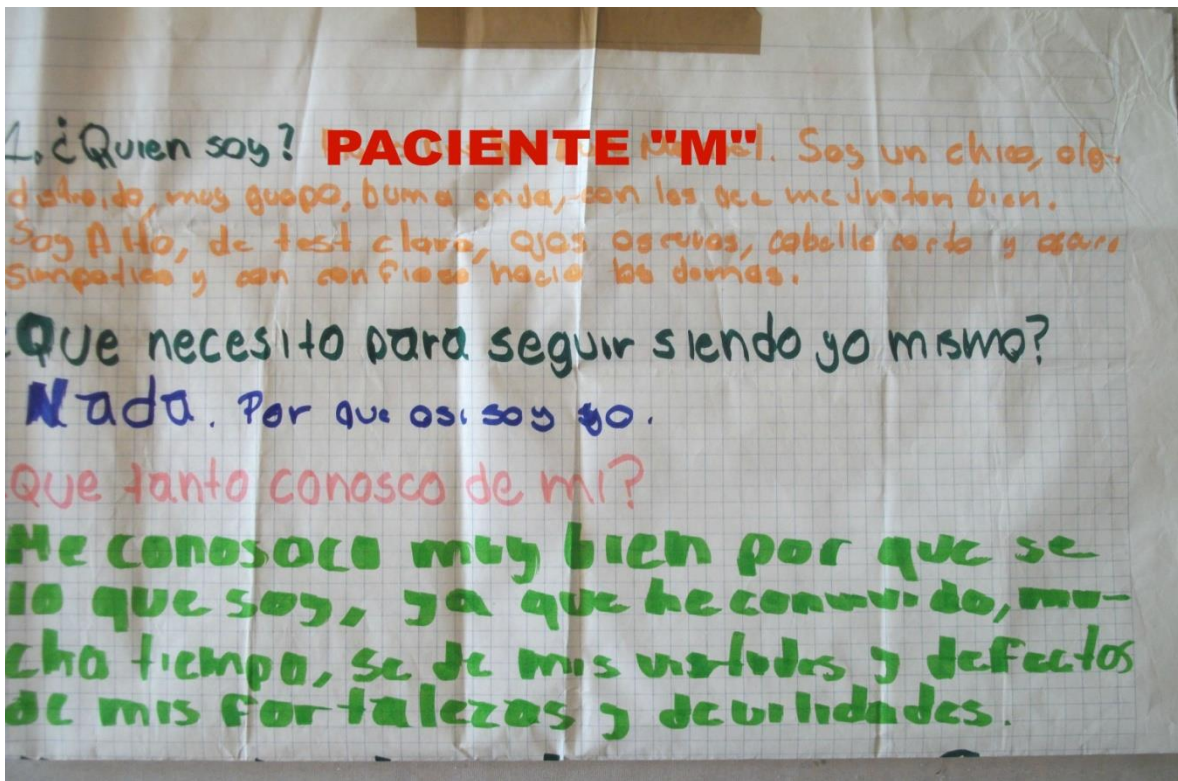 1. ¿Quien soy? PACIENTE "M" . Soy un chico, algo
distraido, muy guapo, buena onda, con los que me traten bien.
Soy Alto, de test clara, ojos oscuros, cabello corto y
simpatico y con confiaza hacia los demas.
Que necesito para seguir siendo yo mismo?
Nada. Por que asi soy yo.
Que tanto conosco de mi?
Me conosoco muy bien por que se
lo que soy, ya que he do, mu-
cho tiempo, se de mis y defectos
de mis fortalezas y devilidades.